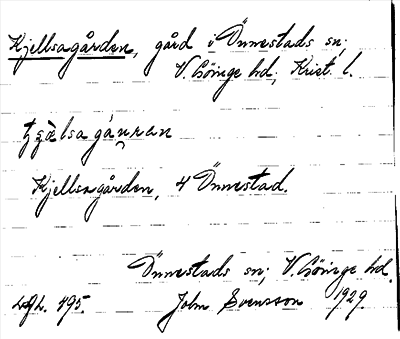 Kjellsagården, gård i Önnestads sn;
V. Göinge hd; Krist. l.
Kjellsagården, 4 Önnestad.
Önnestads sn; V. Göinge hd.
495. John Svensson 1929